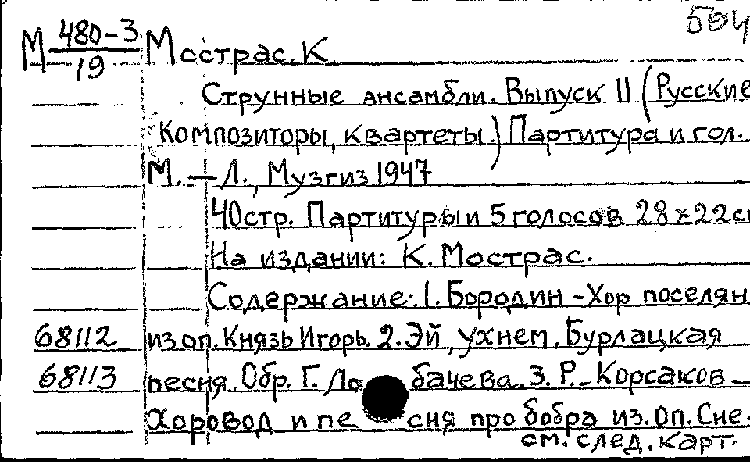 504
М 480-3/19 Мострас. К
Струнные ансамбли. Выпуск II (Русские
Композиторы, квартеты.) Партитура и гол.
М. — Л., Музгиз 1947
40стр. Партитуры и 5 голосов 28х22см
На издании: К. Мострас.
Содержание: 1. Бородин - Хор поселян
68112 из оп. Князь Игорь. 2. Эй, ухнем. Бурлацкая
68113 песня. Обр. Г. Ло бачева. 3. Р.-Корсаков -
Хоровод и пе сня про бобра из. оп. Сне-
см. след. карт.